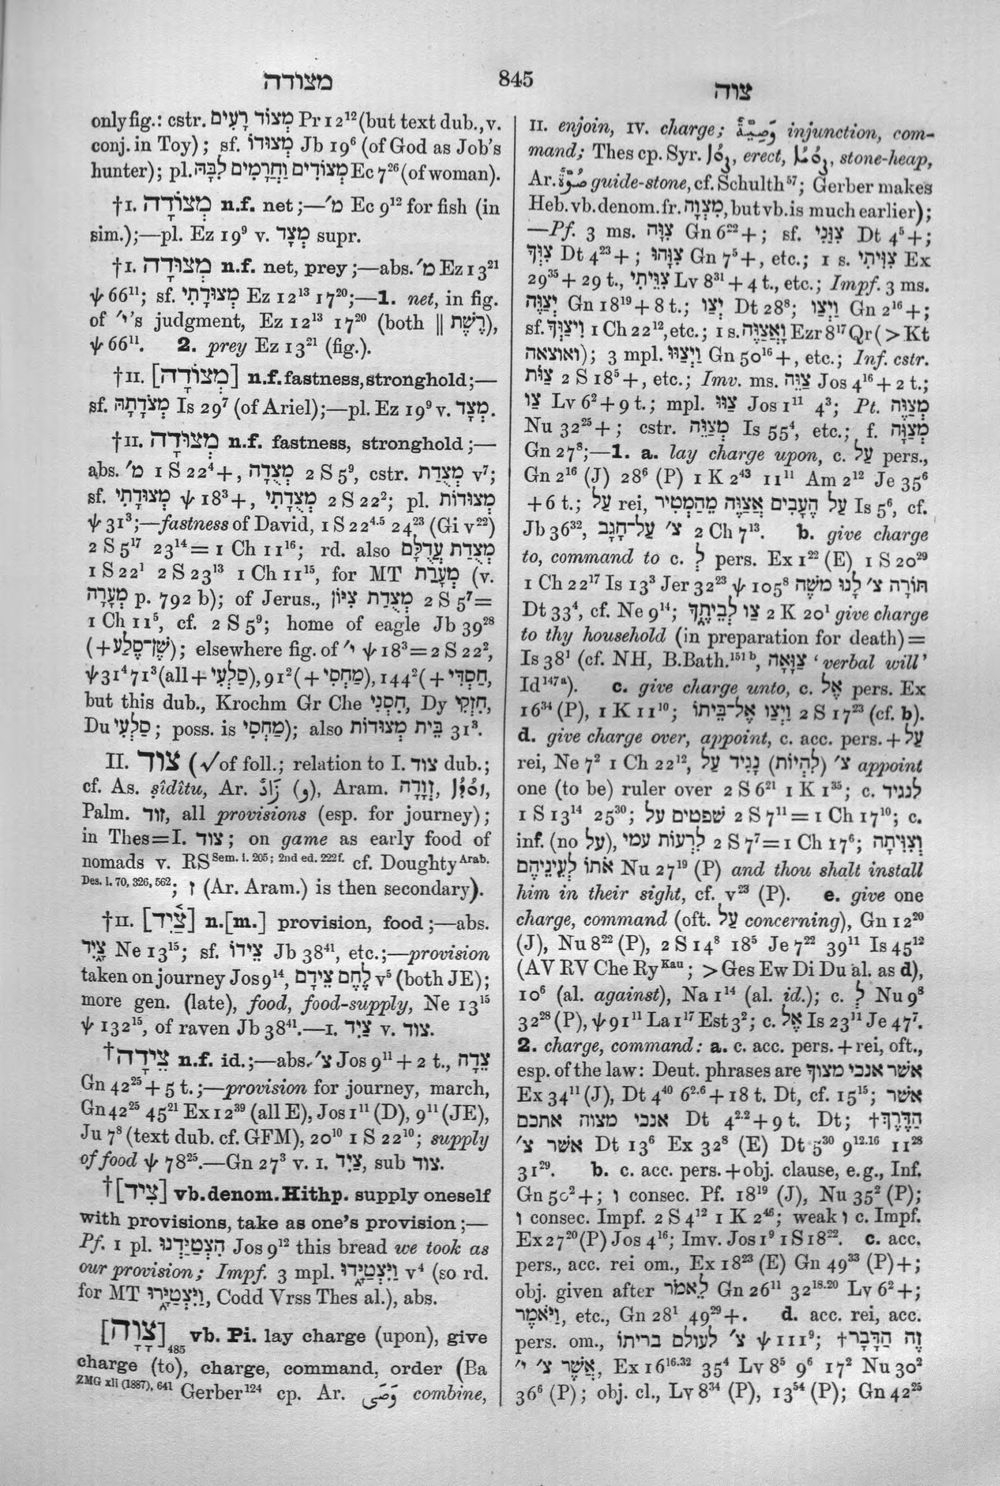 מצודה
845
צוה
only fig.: cstr. מְצוֹד רָעִים Pr 12¹² (but text dub., v.
conj. in Toy); sf. מְצוּדוֹ Jb 19⁶ (of God as Job's
hunter); pl. מְצוֹדִים וַחֲרָמִים לִבָּהּ Ec 7²⁶ (of woman).
†I. מְצוֹדָה n.f. net;—מ׳ Ec 9¹² for fish (in
sim.);—pl. Ez 19⁹ v. מְצָד supr.
†I. מְצוּדָה n.f. net, prey;—abs. מ׳ Ez 13²¹
ψ 66¹¹; sf. מְצוּדָתִי Ez 12¹³ 17²⁰;—1. net, in fig.
of י׳'s judgment, Ez 12¹³ 17²⁰ (both ‖ רֶשֶׁת),
ψ 66¹¹. 2. prey Ez 13²¹ (fig.).
†II. [מְצוֹדָה] n.f. fastness, stronghold;—
sf. מְצֹדָתָהּ Is 29⁷ (of Ariel);—pl. Ez 19⁹ v. מְצָד.
†II. מְצוּדָה n.f. fastness, stronghold;—
abs. מ׳ 1 S 22⁴+, מְצֻדָה 2 S 5⁹, cstr. מְצֻדַת v⁷;
sf. מְצוּדָתִי ψ 18³+, מְצֻדָתִי 2 S 22²; pl. מְצוּדוֹת
ψ 31³;—fastness of David, 1 S 22⁴·⁵ 24²³ (Gi v²²)
2 S 5¹⁷ 23¹⁴ = 1 Ch 11¹⁶; rd. also מְצֻדַת עֲדֻלָּם
1 S 22¹ 2 S 23¹³ 1 Ch 11¹⁵, for MT מְעָרַת (v.
מְעָרָה p. 792 b); of Jerus., מְצֻדַת צִיּוֹן 2 S 5⁷=
1 Ch 11⁵, cf. 2 S 5⁹; home of eagle Jb 39²⁸
(+שֶׁן־סֶלַע); elsewhere fig. of י׳ ψ 18³=2 S 22²,
ψ 31⁴ 71³ (all + סַלְעִי), 91² (+ מַחְסִי), 144² (+ חַסְדִּי,
but this dub., Krochm Gr Che חָסְנִי, Dy חִזְקִי,
Du סַלְעִי; poss. is מַחְסִי); also בֵּית מְצוּדוֹת 31³.
II. צוּד (√ of foll.; relation to I. צוד dub.;
cf. As. ṣidîtu, Ar. زَادٌ (و), Aram. זְוָדָה,
Palm. זוד, all provisions (esp. for journey);
in Thes=I. צוד; on game as early food of
nomads v. RS Sem. i. 205; 2nd ed. 222f. cf. Doughty Arab.
Des. i. 70, 326, 562; ז (Ar. Aram.) is then secondary).
†II. [צַ֫יִד] n.[m.] provision, food;—abs.
צַיִד Ne 13¹⁵; sf. צֵידוֹ Jb 38⁴¹, etc.;—provision
taken on journey Jos 9¹⁴, לֶחֶם צֵידָם v⁵ (both JE);
more gen. (late), food, food-supply, Ne 13¹⁵
ψ 132¹⁵, of raven Jb 38⁴¹.—I. צַיִד v. צוד.
†צֵידָה n.f. id.;—abs. צ׳ Jos 9¹¹ + 2 t., צֵדָה
Gn 42²⁵ + 5 t.;—provision for journey, march,
Gn 42²⁵ 45²¹ Ex 12³⁹ (all E), Jos 1¹¹ (D), 9¹¹ (JE),
Ju 7⁸ (text dub. cf. GFM), 20¹⁰ 1 S 22¹⁰; supply
of food ψ 78²⁵.—Gn 27³ v. I. צַיִד, sub צוד.
†[צִיד] vb. denom. Hithp. supply oneself
with provisions, take as one's provision;—
Pf. 1 pl. הִצְטַיַּדְנוּ Jos 9¹² this bread we took as
our provision; Impf. 3 mpl. וַיִּצְטַיָּדוּ v⁴ (so rd.
for MT וַיִּצְטַיָּרוּ, Codd Vrss Thes al.), abs.
[צָוָה]₄₈₅ vb. Pi. lay charge (upon), give
charge (to), charge, command, order (Ba
ZMG xli (1887), 641 Gerber¹²⁴ cp. Ar. وَصَى combine,
II. enjoin, IV. charge; وَصِيَّةٌ injunction, com-
mand; Thes cp. Syr. erect, stone-heap,
Ar. صُوَّةٌ guide-stone, cf. Schulth⁵⁷; Gerber makes
Heb. vb. denom. fr. מִצְוָה, but vb. is much earlier);
—Pf. 3 ms. צִוָּה Gn 6²²+; sf. צִוַּנִי Dt 4⁵+;
צִוְּךָ Dt 4²³+; צִוָּהוּ Gn 7⁵+, etc.; 1 s. צִוֵּיתִי Ex
29³⁵ + 29 t., צִוֵּיתִי Lv 8³¹ + 4 t., etc.; Impf. 3 ms.
יְצַוֶּה Gn 18¹⁹ + 8 t.; יְצַו Dt 28⁸; וַיְצַו Gn 2¹⁶ +;
sf. וַיְצַוֵּךְ 1 Ch 22¹², etc.; 1 s. וָאֲצַוֶּה Ezr 8¹⁷ Qr (> Kt
ואוצאה); 3 mpl. וַיְצַוּוּ Gn 50¹⁶+, etc.; Inf. cstr.
צַוֹּת 2 S 18⁵+, etc.; Imv. ms. צַוֵּה Jos 4¹⁶ + 2 t.;
צַו Lv 6² + 9 t.; mpl. צַוּוּ Jos 1¹¹ 4³; Pt. מְצַוֶּה
Nu 32²⁵+; cstr. מְצַוֵּה Is 55⁴, etc.; f. מְצַוָּה
Gn 27⁸;—1. a. lay charge upon, c. עַל pers.,
Gn 2¹⁶ (J) 28⁶ (P) 1 K 2⁴³ 11¹¹ Am 2¹² Je 35⁶
+ 6 t.; עַל rei, עַל הֶעָבִים אֲצַוֶּה מֵהַמְטִיר Is 5⁶, cf.
Jb 36³², צ׳ עַל־חָגָב 2 Ch 7¹³. b. give charge
to, command to c. לְ pers. Ex 1²² (E) 1 S 20²⁹
1 Ch 22¹⁷ Is 13³ Jer 32²³ ψ 105⁸ תּוֹרָה צ׳ לָנוּ מֹשֶׁה
Dt 33⁴, cf. Ne 9¹⁴; צַו לְבֵיתֶךָ 2 K 20¹ give charge
to thy household (in preparation for death)=
Is 38¹ (cf. NH, B.Bath.¹⁵¹ᵇ, צַוָּאָה 'verbal will'
Id¹⁴⁷ᵃ). c. give charge unto, c. אֶל pers. Ex
16³⁴ (P), 1 K 11¹⁰; וַיְצַו אֶל־בֵּיתוֹ 2 S 17²³ (cf. b).
d. give charge over, appoint, c. acc. pers. + עַל
rei, Ne 7² 1 Ch 22¹², צ׳ (לִהְיוֹת) נָגִיד עַל appoint
one (to be) ruler over 2 S 6²¹ 1 K 1³⁵; c. לנגיד
1 S 13¹⁴ 25³⁰; שפטים על 2 S 7¹¹ = 1 Ch 17¹⁰; c.
inf. (no עַל), לִרְעוֹת עמי 2 S 7⁷ = 1 Ch 17⁶; וְצִוִּיתָה
אֹתוֹ לְעֵינֵיהֶם Nu 27¹⁹ (P) and thou shalt install
him in their sight, cf. v²³ (P). e. give one
charge, command (oft. עַל concerning), Gn 12²⁰
(J), Nu 8²² (P), 2 S 14⁸ 18⁵ Je 7²² 39¹¹ Is 45¹²
(AV RV Che Ry Kau; > Ges Ew Di Du al. as d),
10⁶ (al. against), Na 1¹⁴ (al. id.); c. לְ Nu 9⁸
32²⁸ (P), ψ 91¹¹ La 1¹⁷ Est 3²; c. אֶל Is 23¹¹ Je 47⁷.
2. charge, command: a. c. acc. pers. + rei, oft.,
esp. of the law: Deut. phrases are אשר אנכי מצוך
Ex 34¹¹ (J), Dt 4⁴⁰ 6²·⁶ + 18 t. Dt, cf. 15¹⁵; אשר
אנכי מצוה אתכם Dt 4²·² + 9 t. Dt; †הַדֶּרֶךְ
אשר צ׳ Dt 13⁶ Ex 32⁸ (E) Dt 5³⁰ 9¹²·¹⁶ 11²⁸
31²⁹. b. c. acc. pers. + obj. clause, e.g., Inf.
Gn 50²+; ו consec. Pf. 18¹⁹ (J), Nu 35² (P);
ו consec. Impf. 2 S 4¹² 1 K 2⁴⁶; weak ו c. Impf.
Ex 27²⁰ (P) Jos 4¹⁶; Imv. Jos 1⁹ 1 S 18²². c. acc.
pers., acc. rei om., Ex 18²³ (E) Gn 49³³ (P)+;
obj. given after לֵאמֹר Gn 26¹¹ 32¹⁸·²⁰ Lv 6²+;
וַיֹּאמֶר, etc., Gn 28¹ 49²⁹+. d. acc. rei, acc.
pers. om., צ׳ לעולם בריתו ψ 111⁹; †זֶה הַדָּבָר
אֲשֶׁר צ׳ י׳, Ex 16¹⁶·³² 35⁴ Lv 8⁵ 9⁶ 17² Nu 30²
36⁶ (P); obj. cl., Lv 8³⁴ (P), 13⁵⁴ (P); Gn 42²⁵